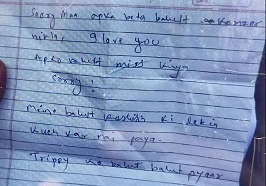 Sorry maa apka beta bahut kamzor
nikla, I love you
Apko bahut miss kiya
Sorry!
Maine bahut koshish ki lekin
kuch kar nai paya.
Trippy ko bahut bahut pyaar